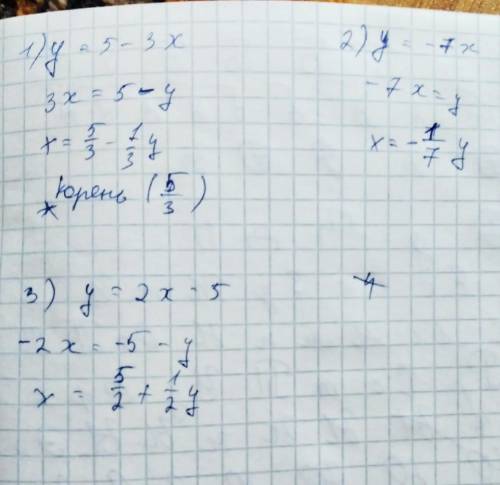 1) y = 5 - 3x
3x = 5 - y
x = 5/3 - 1/3 y
Корень (5/3)
2) y = -7x
-7x = y
x = -1/7 y
3) y = 2x - 5
-2x = -5 - y
x = 5/2 + 1/2 y
4